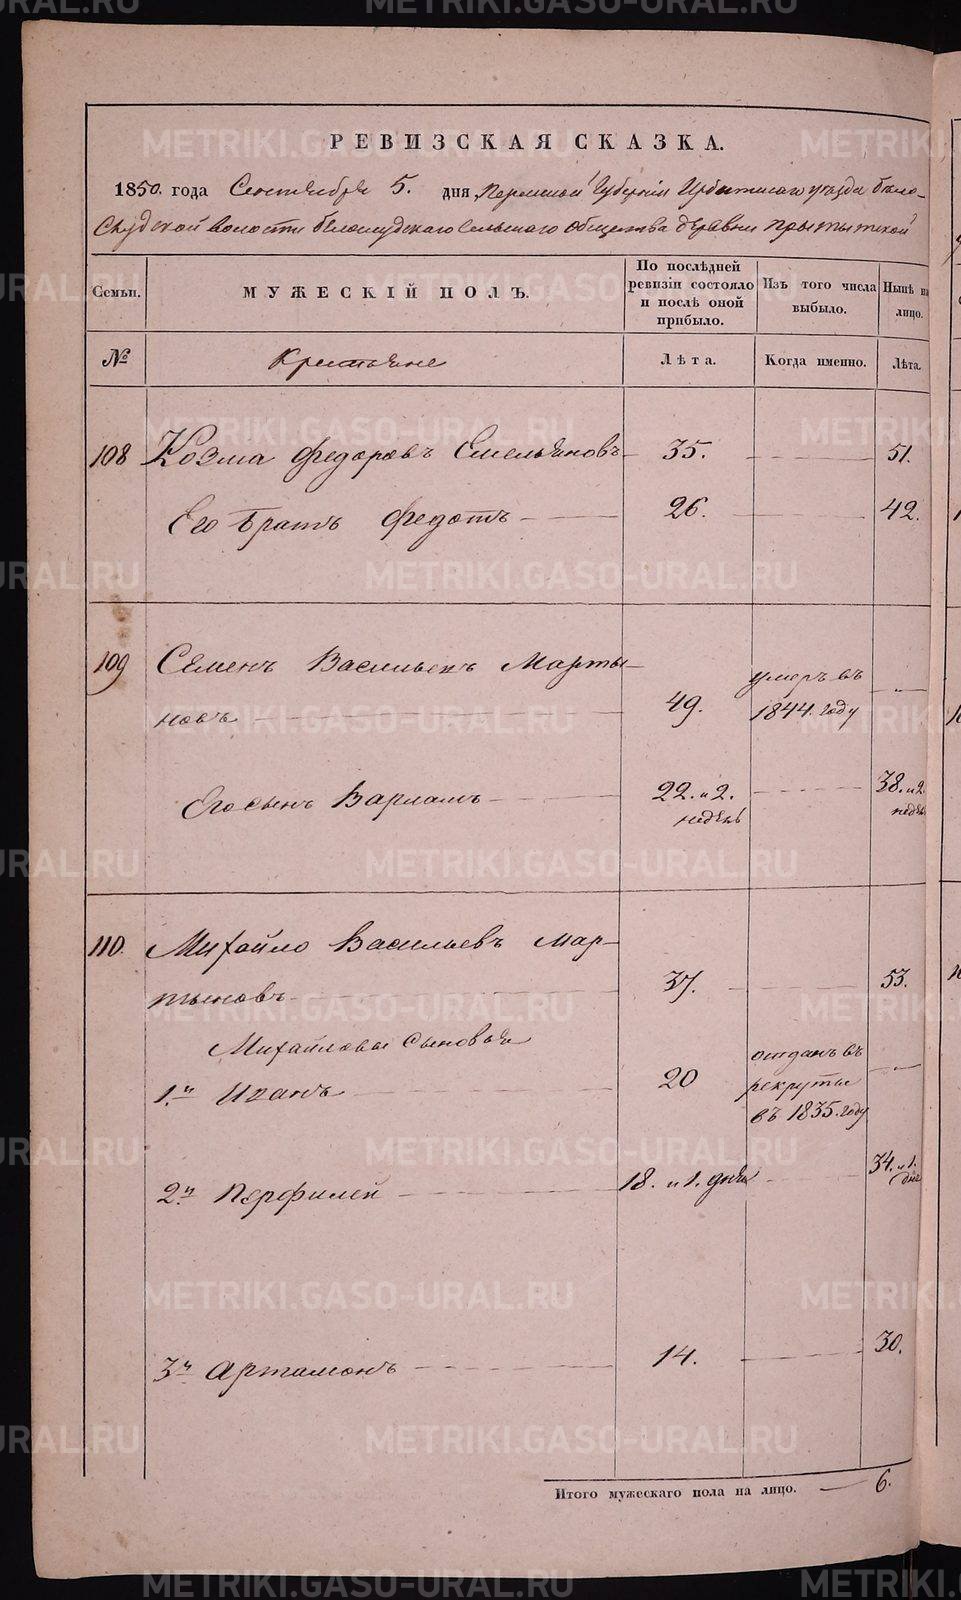 РЕВИЗСКАЯ СКАЗКА.
1850. года Сентября 5. дня Пермской Губернiи Ирбитскаго уезда бело-
слудской волости белослудскаго сельскаго общества деревни
Семьи. МУЖЕСКIЙ ПОЛЪ. По послѣдней ревизiи состояло и послѣ оной прибыло. Изъ того числа выбыло. Нынѣ на лицо.
№ Крестьяне Лѣта. Когда именно. Лѣта.
108 Козма Федоровъ Емельяновъ 35. 51.
Его братъ Федотъ 26. 42.
109 Семенъ Васильевъ Марты-
новъ 49. умеръ въ 1844. году „
Его сынъ Варламъ 22. и 2. недѣль 38. и 2. недѣль
110. Михайло Васильевъ Мар-
тыновъ 37. 53.
Михайловы сыновья
1.й Иванъ 20 отданъ въ рекруты въ 1835. году „
2.й Перфилей 18. и 1. дня 34. и 1. дня
3й Артамонъ 14. 30.
Итого мужескаго пола на лицо. 6.
METRIKI.GASO-URAL.RU